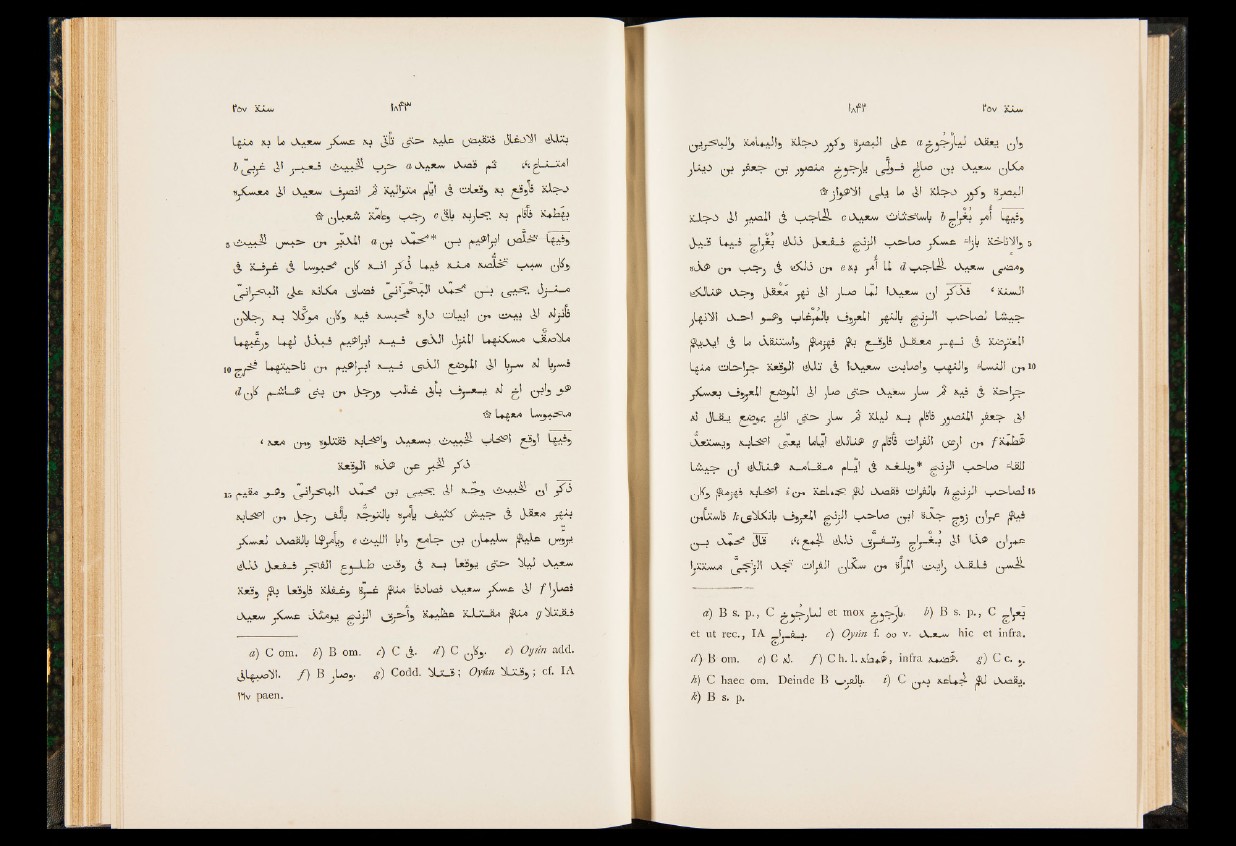 سنة ٢٥٧ ١٨۴٢
وان يعقد ليارجوخ a على البصرة وكور دجلة واليمامة والبحرين
مكان سعيد بن صالح فولّى يارجوخ منصور بن جعفر بن دينار
البصرة وكور دجلة الى ما يلى الاهواز ۞
وفيها أُمر بُغْراج b باستحثاث سعيد c الحاجب فى المصير الى دجلة
5 والاناخة بازاء عسكر صاحب الزنج ففعل ذلك بُغْراج فيما قيل
ومضى سعيد الحاجب d لما أُمر به e من ذلك فى رجب من هذه
السنة ‘ فذُكر ان سعيدا لمّا صار الى نهر مَعْقل وجد هنالك
جيشا لصاحب الزنج بالنهر المعروف بالمُرْغاب وهو احد الانهار
المعترضة فى نهر معقل فاوقع بهم فهزمهم واستنقذ ما فى ايديهم
10 من النساء والنهب واصابت سعيدا فى تلك الوقعة جراحات منها
جراحة فى فيه ثم سار سعيد حتى صار الى الموضع المعروف بعسكر
ابى جعفر المنصور فاقام به ليلة ثم سار حتى اناخ بموضع يقال له
هَطْمَة f من ارض الفرات فأقام g هنالك ايّاما يعبّى اصحابه ويستعدّ
للقاء صاحب الزنج *وبلغه فى ايّام مقامه هنالك ان جيشا
15 لصاحب الزنج h بالفرات فقصد لهم بجماعة من i اصحابه فهزمهم وكان
فيهم عمران زوج جدّة ابن صاحب الزنج المعروف بانكلاى k فاستأمن
عمران هذا الى بُغْراج وتفرّق ذلك الجمع ‘ قال محمّد بن
الحسن فلقد رايت المرأة من سكّان الفرات تجد الزنجىّ مستترا
a) B s. p., C ليارجُوخ et mox يارجُوخ. b) B s. p., C بُغراج
et ut rec., IA بغراج. c) Oyún f. ٥٥ v. سعد hic et infra.
d) B om. e) C له. f) Ch. l. هطمه, infra. g) C c. و.
h) C haec om. Deinde B بالعرب. i) C يقصد لهم جماعة بين.
k) B s. p.
سنة ٢٥٧ ١٨۴٣
بتلك الادغال فتقبض عليه حتى تأتى به عسكر سعيد ما به منها
امتناع ‘ ثم قصد سعيد a حرب الخبيث فعبر الى غربىّ b
دجلة فأوقع به وقعات فى ايّام متوالية ثم انصرف سعيد الى معسكره
بهَطْمَة فأقام به يحاربه باقى c رجب وعامّة شعبان ۞
5 وفيها تخلّص ابراهيم بن *محمّد بن a المدبّر من حبس الخبيث
وكان سبب تخلّصه منه فيما ذُكر انه كان محبوسا فى غرفة فى
منزل يحيى بن محمّد البَحْرانىّ فضاق مكانه على البحرانىّ
فأنزله الى بيت من ابيات داره فحبسه فيه وكان موكّلا به رجلان
ملاصقٌ مسكنهما المنزل الذى فيه ابراهيم فبذل لهما ورغّبهما
10 فسربا له سربا الى الموضع الذى فيه ابراهيم من ناحيتهما فخرج
هو وابن اخ له يعرف بأبى غالب ورجل من بنى هاشم كان d
محبوسا معهما ۞
وفيها اوقع اصحاب الخبيث بسعيد واصحابه فقتلوه ومن معه ‘
ذكر الخبر عن هذه الوقعة
15 ذُكر ان الخبيث وجّه الى يحيى بن محمّد البحرانىّ وهو مقيم
بنهر معقل فى جيش كثيف يأمره بالتوجّه بألف رجل من اصحابه
يروّس عليهم سليمان بن جامع وابا الليث e ويأمرهما بالقصد لعسكر
سعيد ليلا حتى يوقعا به فى وقت طلوع الفجر ففعل ذلك
فصارا f الى عسكر سعيد فصادفا منهم غرّة وغفلة فاوقعا بهم وقعة
فقتلا g منهم مقتلة عظيمة وأحرق الزنج يومئذ عسكر سعيد
a) C om. b) B om. c) C فى. d) C وكان. e) Oyún add.
الاصبهانى. f) B وصار. g) Codd. قتلا; Oyún وقتلا; cf. IA
١٦٧ paen.